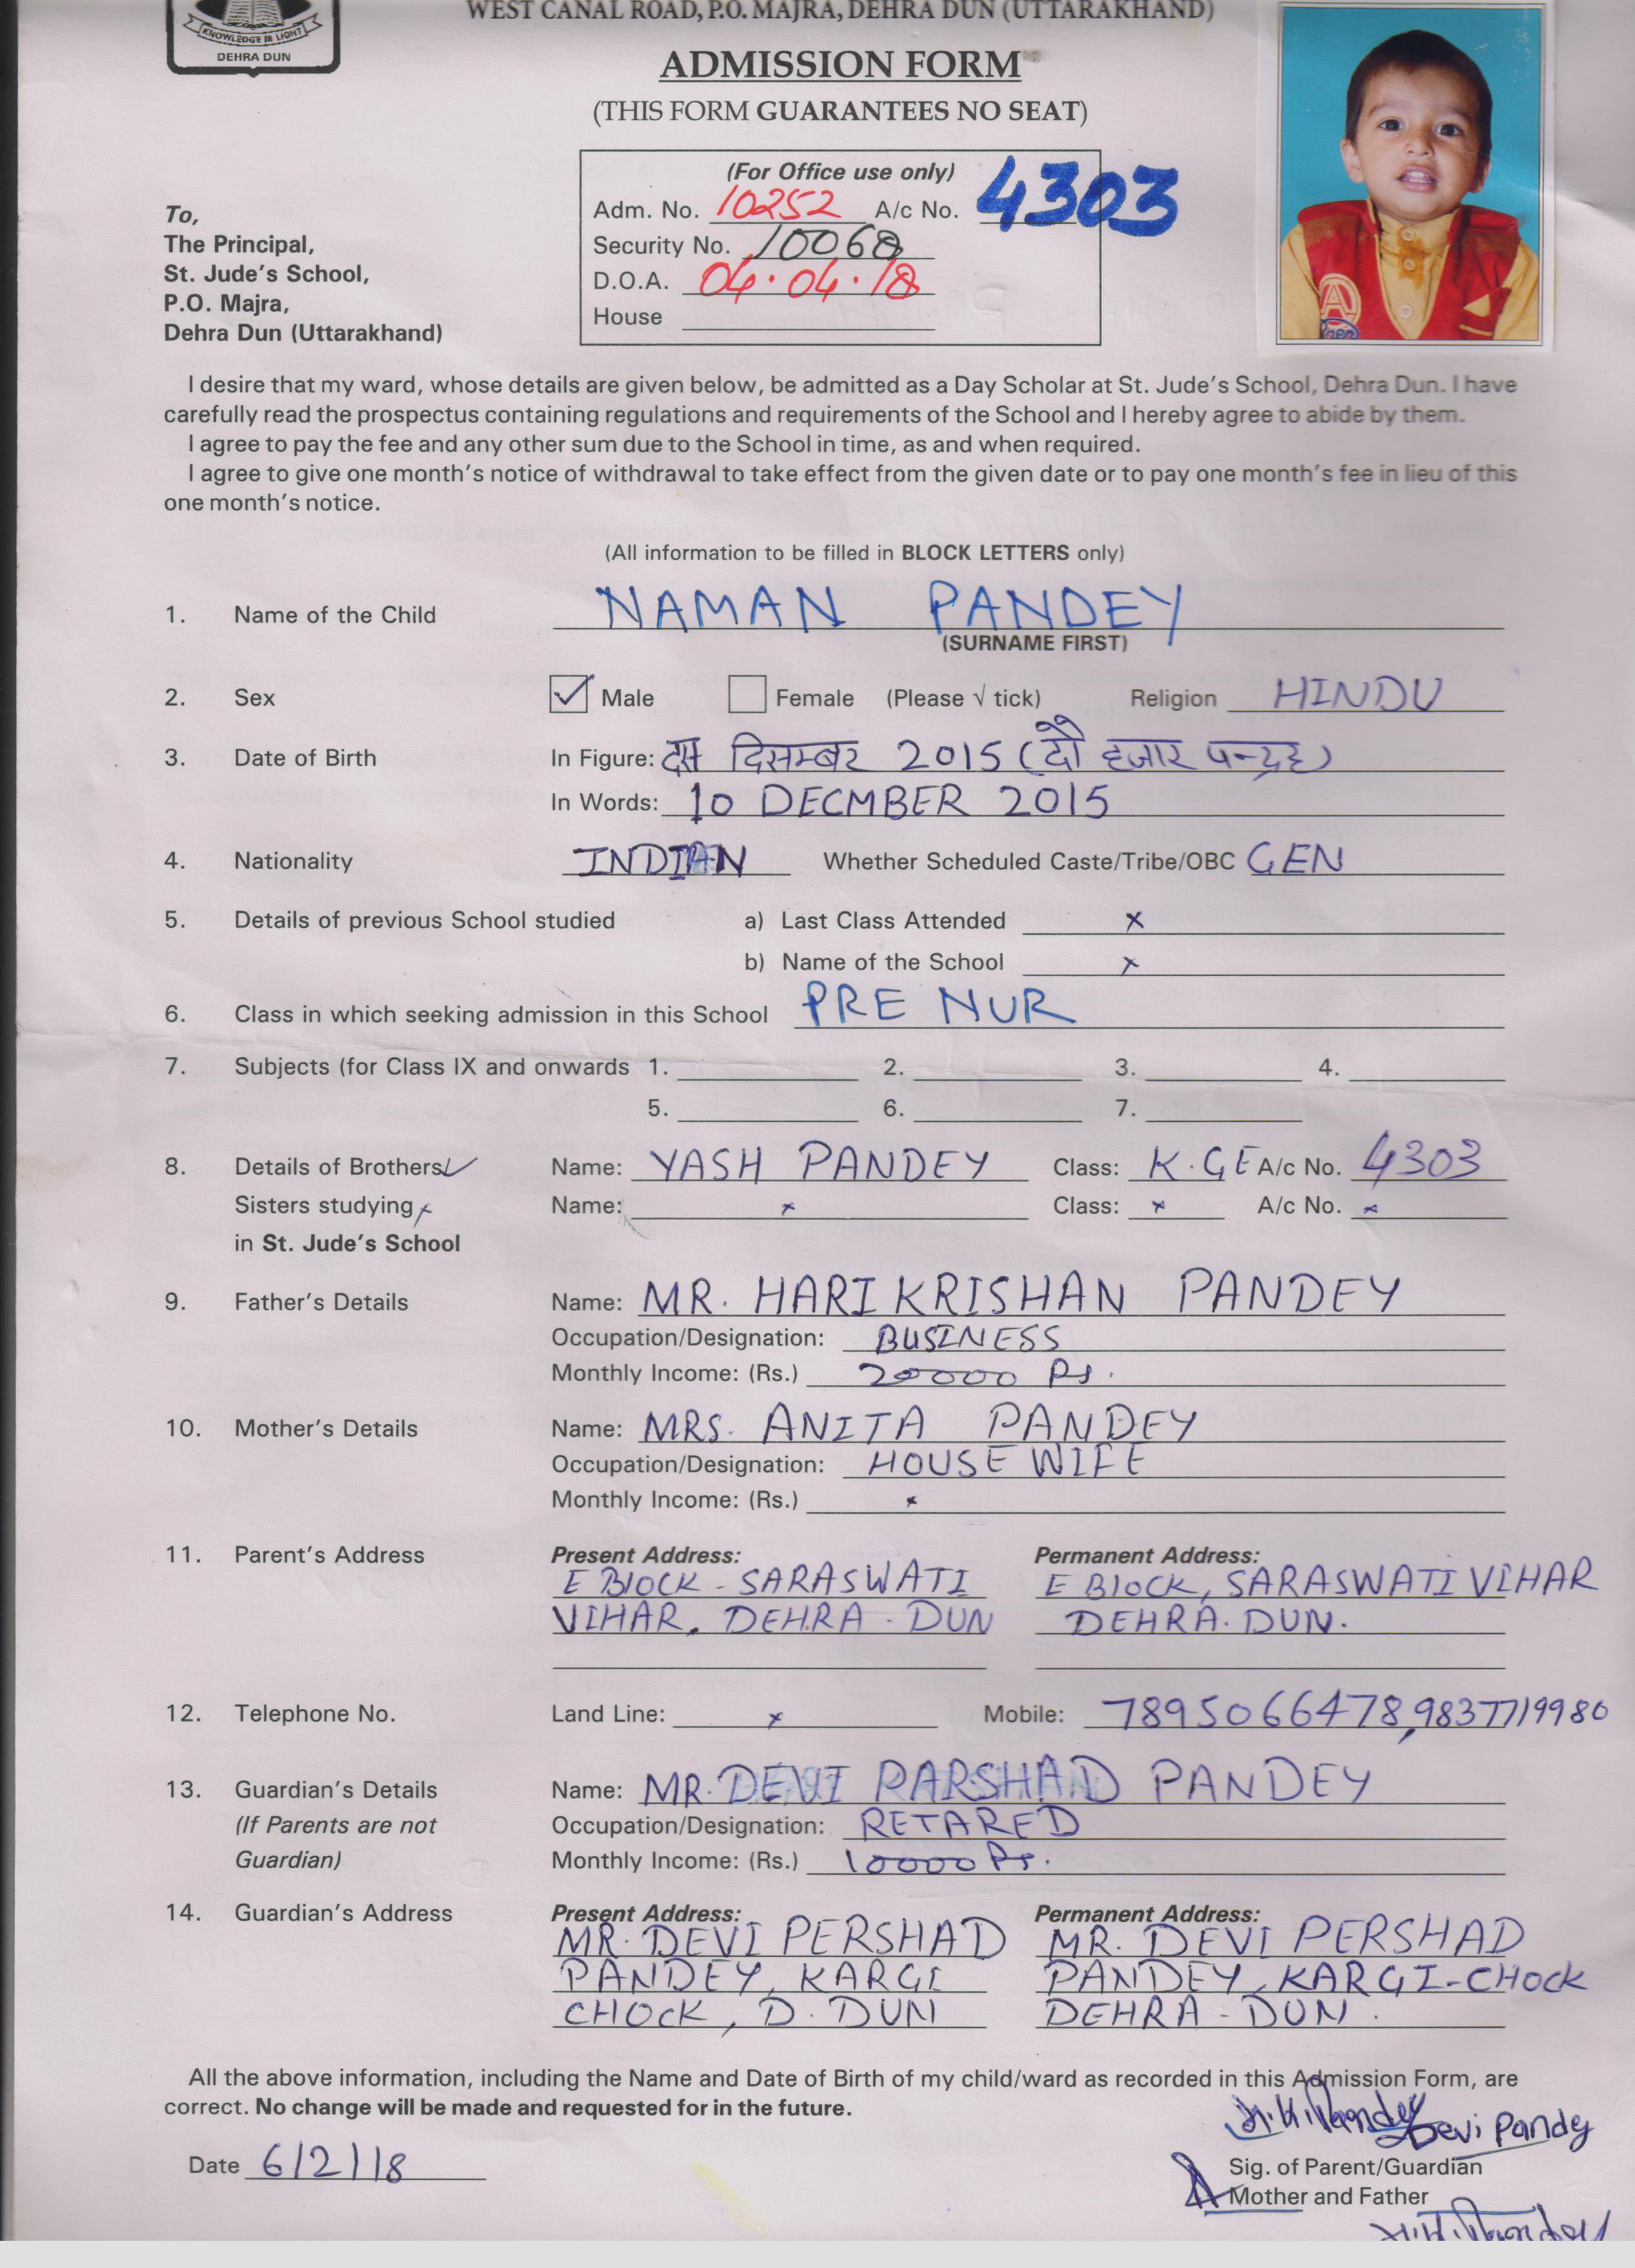 KNOWLEDGE IS LIGHT
DEHRA DUN
WEST CANAL ROAD, P.O. MAJRA, DEHRA DUN (UTTARAKHAND)
ADMISSION FORM
(THIS FORM GUARANTEES NO SEAT)
(For Office use only)
Adm. No. 10252 A/c No. 4303
Security No. 10068
D.O.A. 04.04.18
House
To,
The Principal,
St. Jude's School,
P.O. Majra,
Dehra Dun (Uttarakhand)
I desire that my ward, whose details are given below, be admitted as a Day Scholar at St. Jude's School, Dehra Dun. I have
carefully read the prospectus containing regulations and requirements of the School and I hereby agree to abide by them.
I agree to pay the fee and any other sum due to the School in time, as and when required.
I agree to give one month's notice of withdrawal to take effect from the given date or to pay one month's fee in lieu of this
one month's notice.
(All information to be filled in BLOCK LETTERS only)
1. Name of the Child NAMAN PANDEY
(SURNAME FIRST)
2. Sex Male Female (Please √ tick) Religion HINDU
3. Date of Birth In Figure: दस दिसम्बर 2015 (दौ हजार पन्द्रह)
In Words: 10 DECMBER 2015
4. Nationality INDIAN Whether Scheduled Caste/Tribe/OBC GEN
5. Details of previous School studied a) Last Class Attended x
b) Name of the School x
6. Class in which seeking admission in this School PRE NUR
7. Subjects (for Class IX and onwards 1. 2. 3. 4.
5. 6. 7.
8. Details of Brothers Name: YASH PANDEY Class: K.GE A/c No. 4303
Sisters studying x Name: x Class: x A/c No. x
in St. Jude's School
9. Father's Details Name: MR. HARI KRISHAN PANDEY
Occupation/Designation: BUSINESS
Monthly Income: (Rs.) 20000 Rs.
10. Mother's Details Name: MRS. ANITA PANDEY
Occupation/Designation: HOUSE WIFE
Monthly Income: (Rs.) x
11. Parent's Address Present Address: Permanent Address:
E BLOCK - SARASWATI E BLOCK, SARASWATI VIHAR
VIHAR, DEHRA - DUN DEHRA. DUN.
12. Telephone No. Land Line: x Mobile: 7895066478, 9837719980
13. Guardian's Details Name: MR. DEVI PARSHAD PANDEY
(If Parents are not Occupation/Designation: RETARED
Guardian) Monthly Income: (Rs.) 10000 Rs.
14. Guardian's Address Present Address: Permanent Address:
MR. DEVI PERSHAD MR. DEVI PERSHAD
PANDEY, KARGI PANDEY, KARGI-CHOCK
CHOCK, D. DUN DEHRA - DUN.
All the above information, including the Name and Date of Birth of my child/ward as recorded in this Admission Form, are
correct. No change will be made and requested for in the future.
H.K. Pandey Devi Pandy
Date 6/2/18
Sig. of Parent/Guardian
Mother and Father